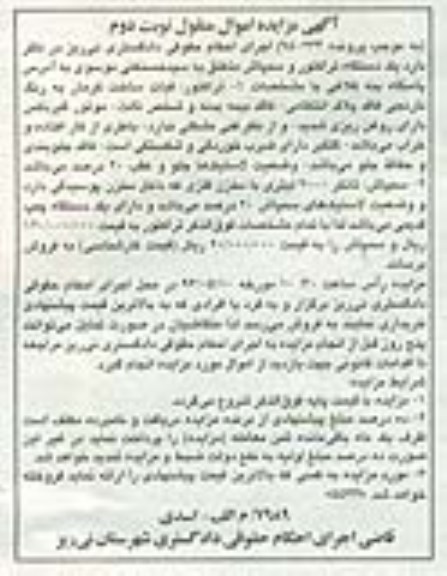 آگهی مزایده اموال منقول نوبت دوم
به موجب پرونده اجرای احکام حقوقی دادگستری نی‌ریز در نظر
دارد یک دستگاه تراکتور و سمپاش متعلق به سیدمصطفی موسوی به آدرس
با مشخصات ۱- تراکتور: فیات ساخت رومانی به رنگ
نارنجی فاقد پلاک انتظامی، فاقد بیمه بدنه و شخص ثالث، موتور گیربکس
دارای روغن ریزی شدید و از نظر فنی باطری از کار افتاده و
خراب می‌باشد، گلگیر دارای ضرب خوردگی و شکستگی است، فاقد جلوبندی
و حفاظ جلو می‌باشد، وضعیت لاستیک‌ها جلو و عقب ۲۰ درصد می‌باشد
۲- سمپاش: تانکر ۲۰۰۰ لیتری با مخزن فلزی که داخل مخزن پوسیدگی دارد
و وضعیت لاستیک‌های سمپاش ۲۰ درصد می‌باشد و دارای یک دستگاه پمپ
قدیمی می‌باشد لذا با تمام مشخصات فوق‌الذکر تراکتور به قیمت
ریال و سمپاش را به قیمت ریال (قیمت کارشناسی) به فروش
برساند.
مزایده راس ساعت ۱۰ مورخه در محل اجرای احکام حقوقی
دادگستری نی‌ریز برگزار و به فرد یا افرادی که به بالاترین قیمت پیشنهادی
خریداری نمایند به فروش می‌رسد لذا متقاضیان در صورت تمایل می‌توانند
پنج روز قبل از انجام مزایده به اجرای احکام حقوقی دادگستری نی‌ریز مراجعه
تا اقدامات قانونی جهت بازدید از اموال مورد مزایده انجام گیرد.
شرایط مزایده:
۱- مزایده با قیمت پایه فوق‌الذکر شروع می‌گردد.
۲- ده درصد مبلغ پیشنهادی از برنده مزایده دریافت و نامبرده مکلف است
ظرف یک ماه باقی‌مانده ثمن معامله (مزایده) را پرداخت نماید در غیر این
صورت ده درصد مبلغ اولیه به نفع دولت ضبط و مزایده تجدید خواهد شد.
۳- مورد مزایده به کسی که بالاترین قیمت پیشنهادی را ارائه نماید فروخته
خواهد شد.
/۷۹۸۹ م الف - اسدی
قاضی اجرای احکام حقوقی دادگستری شهرستان نی ریز